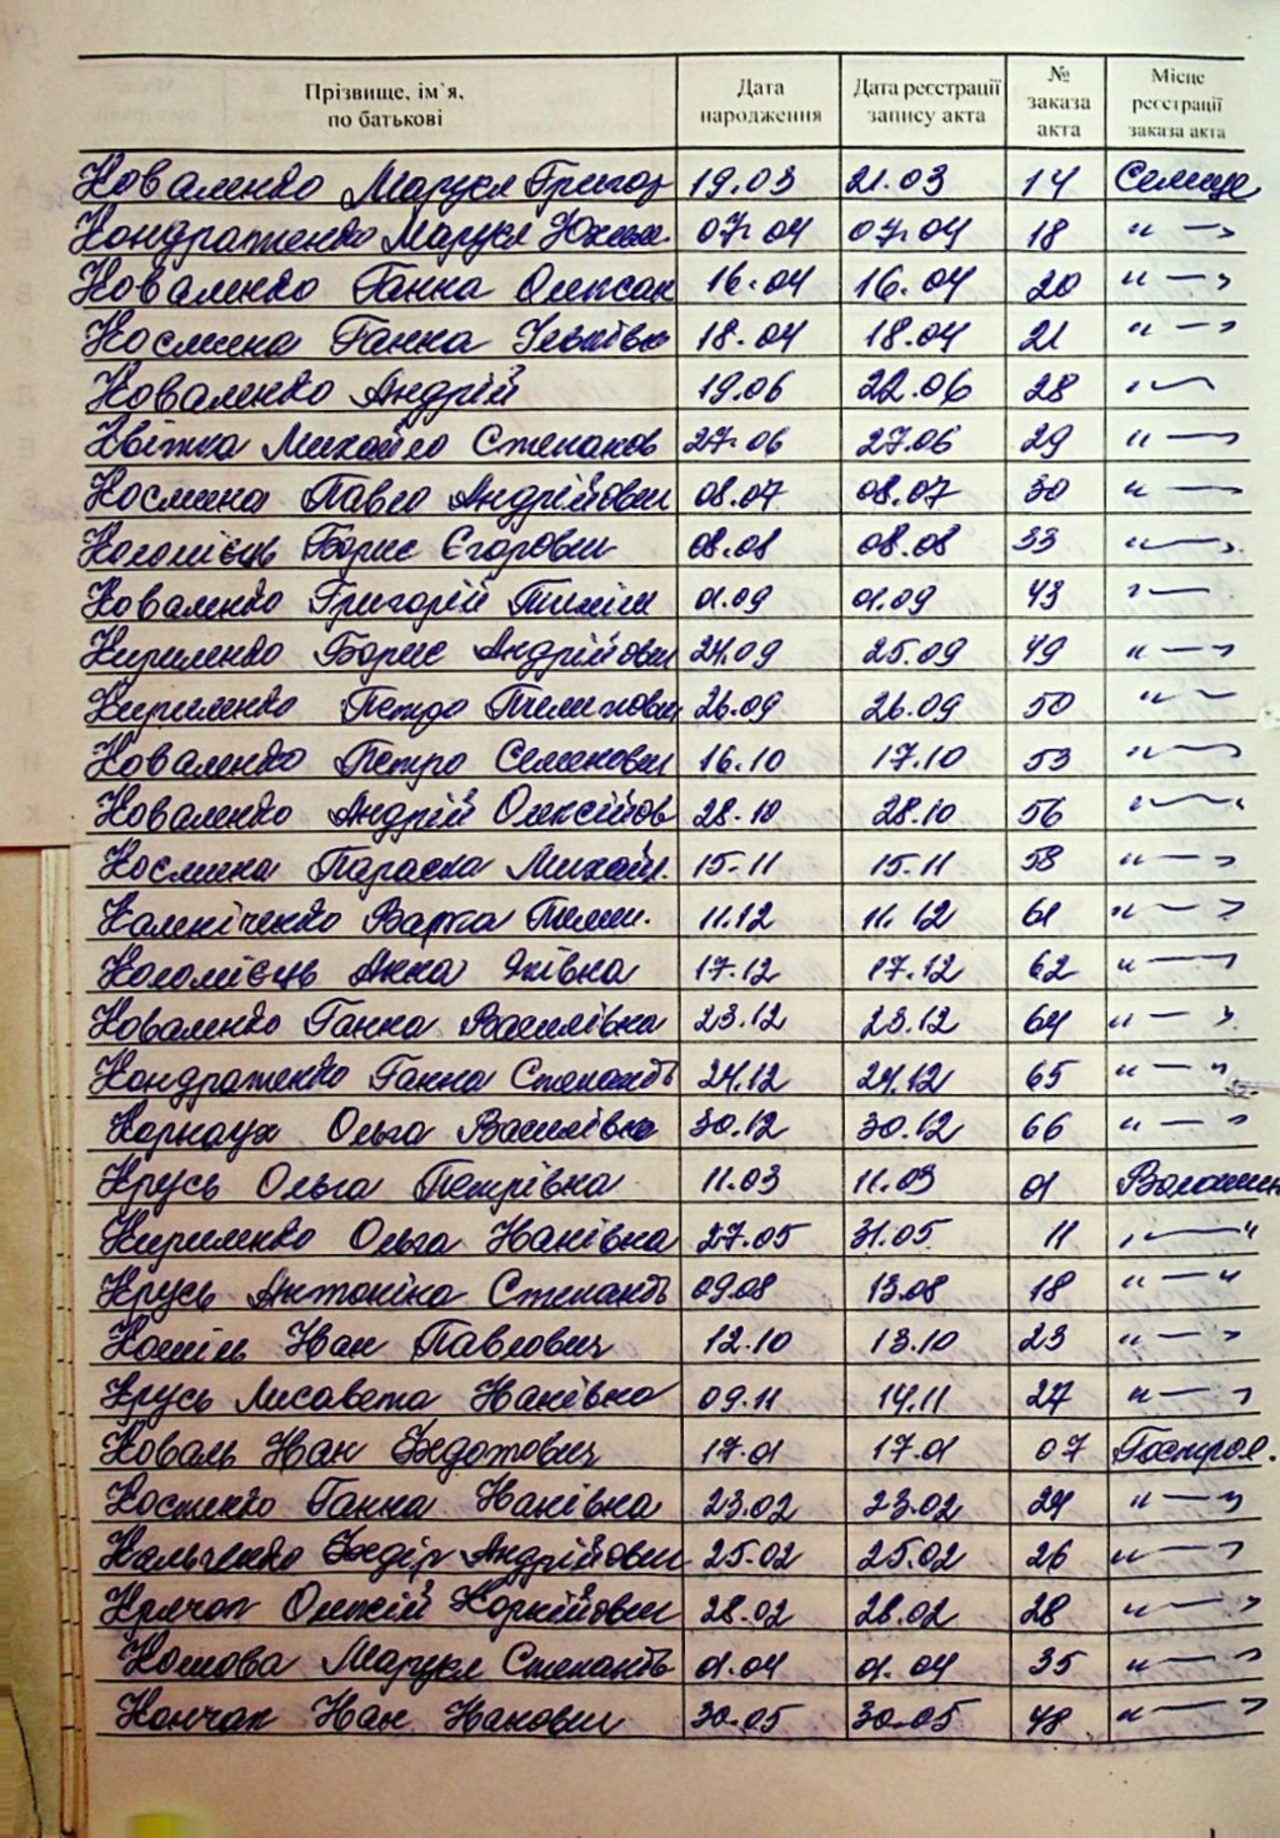 Прізвище, ім`я, по батькові Дата народження Дата реєстрації запису акта № заказа акта Місце реєстрації заказа акта
Коваленко Маруся Григор 19.03 21.03 14 Селище
Кондратенко Маруся Юхим. 07.04 07.04 18 " — "
Коваленко Ганна Олексан 16.04 16.04 20 " — "
Космина Ганна Ільківна 18.04 18.04 21 " — "
Коваленко Андрій 19.06 22.06 28 " —
Квітка Михайло Степанов 27.06 27.06 29 " — "
Космина Павло Андрійович 08.07 08.07 30 " — "
Коломієць Борис Єгорович 08.08 08.08 33 " — "
Коваленко Григорій 01.09 01.09 43 " —
Кириленко Борис Андрійович 24.09 25.09 49 " — "
Кириленко Петро Пилипович 26.09 26.09 50 " —
Коваленко Петро Семенович 16.10 17.10 53 " — "
Коваленко Андрій Олексійов 28.10 28.10 56 " — "
Космина Параска Михайл. 15.11 15.11 58 " — "
Калениченко Варка 11.12 11.12 61 " — "
Коломієць Анна Яківна 17.12 17.12 62 " — "
Коваленко Ганна Василівна 23.12 23.12 64 " — "
Кондратенко Ганна Степанів 24.12 24.12 65 " — "
Карнаух Ольга Василівна 30.12 30.12 66 " — "
Крусь Ольга Петрівна 11.03 11.03 01
Кириленко Ольга Іванівна 27.05 31.05 11 " — "
Крусь Антоніна Степанів 09.08 13.08 18 " — "
Кошіль Іван Павлович 12.10 13.10 23 " — "
Крусь Лисавета Іванівна 09.11 14.11 27 " — "
Коваль Іван Федотович 17.01 17.01 07 Гострол.
Костенко Ганна Іванівна 23.02 23.02 24 " — "
Кальченко Федір Андрійович 25.02 25.02 26 " — "
Крячок Олексій Корнійович 28.02 28.02 28 " — "
Комова Маруся Степанів 01.04 01.04 35 " — "
Кончак Іван Іванович 30.05 30.05 48 " — "